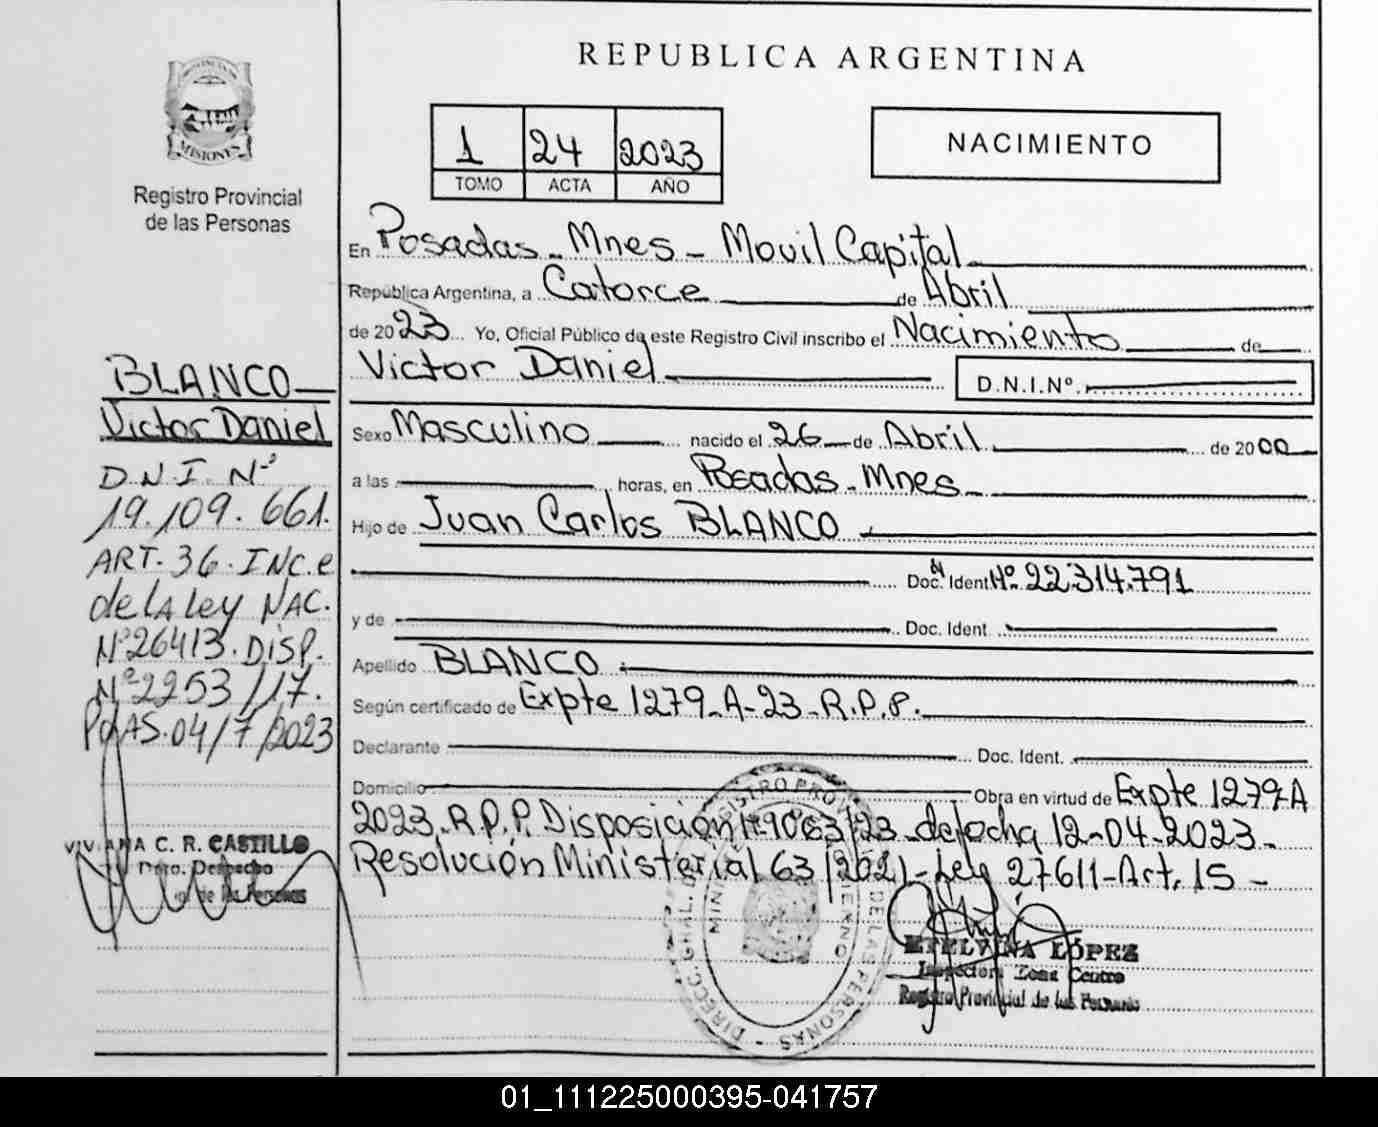 REPUBLICA ARGENTINA
PROVINCIA DE
MISIONES
Registro Provincial
de las Personas
1 24 2023
TOMO ACTA AÑO
NACIMIENTO
En Posadas - Mnes - Movil Capital
República Argentina, a Catorce de Abril
de 2023 Yo, Oficial Público de este Registro Civil inscribo el Nacimiento de
Victor Daniel D.N.I.Nº.
Sexo Masculino nacido el 26 de Abril de 2000
a las horas, en Posadas - Mnes
Hijo de Juan Carlos BLANCO
Doc. Ident Nº 22.314.791
y de Doc. Ident.
Apellido BLANCO
Según certificado de Expte 1279-A-23-R.P.P.
Declarante Doc. Ident.
Domicilio Obra en virtud de Expte 1279-A
2023-R.P.P. Disposición Nº 1063/23 - de fecha 12-04-2023-
Resolución Ministerial 63/2021 - Ley 27611-Art. 15 -
BLANCO
Victor Daniel
D.N.I. Nº
19.109.661.
ART. 36. INC. e
de la Ley NAC.
Nº 26413. DISP.
Nº 2253/17.
PDAS. 04/7/2023
VIVIANA C. R. CASTILLO
Dpto. Despacho
de las Personas
DIRECC. GRAL. DE REGISTRO PROV. DE LAS PERSONAS
ETELVINA LÓPEZ
Inspectora Zona Centro
Registro Provincial de las Personas
01_111225000395-041757